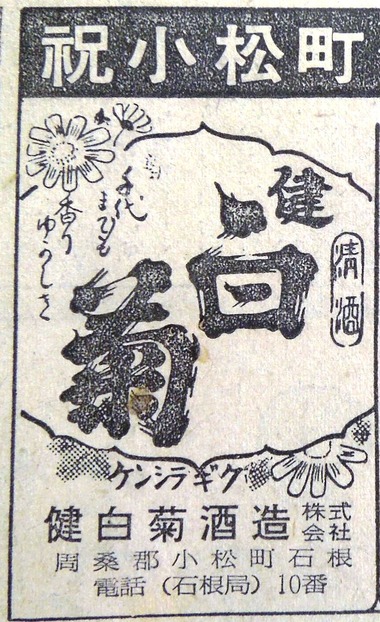 祝小松町
清酒
健
白
菊
千代
までも
香り
ゆかしき
ケンシラギク
健白菊酒造株式会社
周桑郡小松町石根
電話（石根局）10番